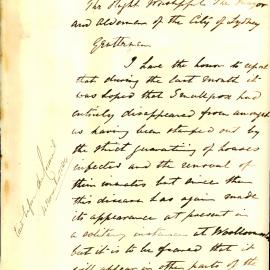 The Right Worshipful The Mayor
and Aldermen of the City of Sydney
Gentlemen
I have the honor to report
that during the last month it
was hoped that Smallpox had
entirely disappeared from amongst
us having been stamped out by
the strict quarantining of houses
infected and the removal of
their inmates but since then
this disease has again made
its appearance at present in
a solitary instance at Woolloomooloo
but it is to be feared that it
will appear in other parts of the